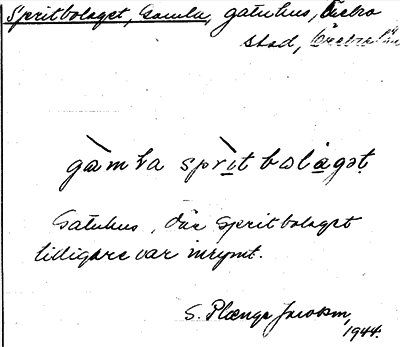 Spritbolaget, Gamla, gatuhus, Örebro
stad, Örebro län
gàmła sprìtbωlàgət
Gatuhus, där Spritbolaget
tidigare var inrymt.
S. Plænge Jacobson,
1944.